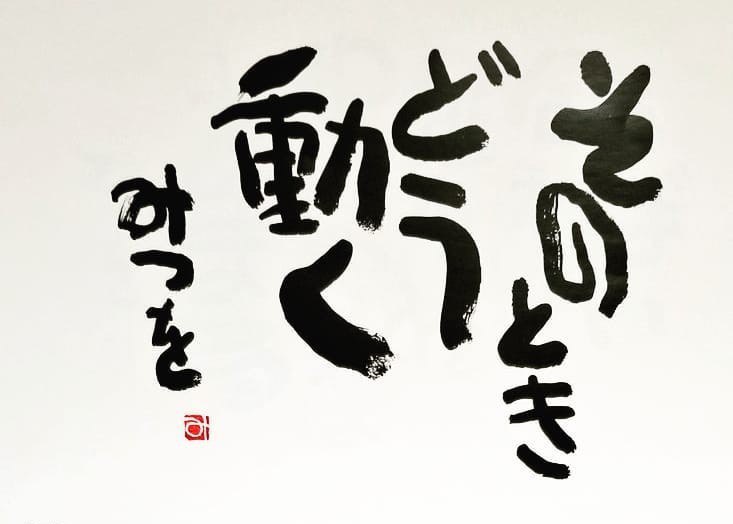 その
とき
どう
動く
みつを
み